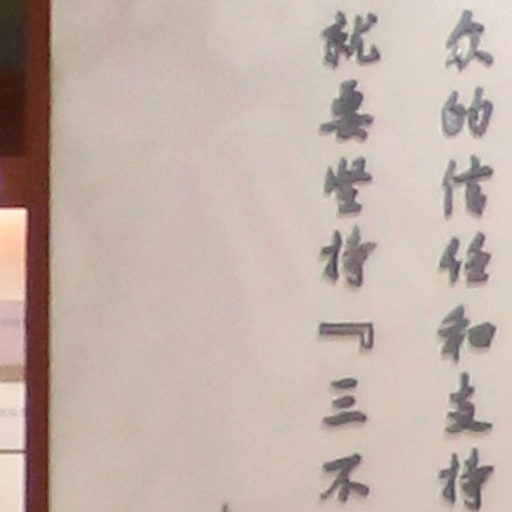 众的信任和支持
就要坚持『三不